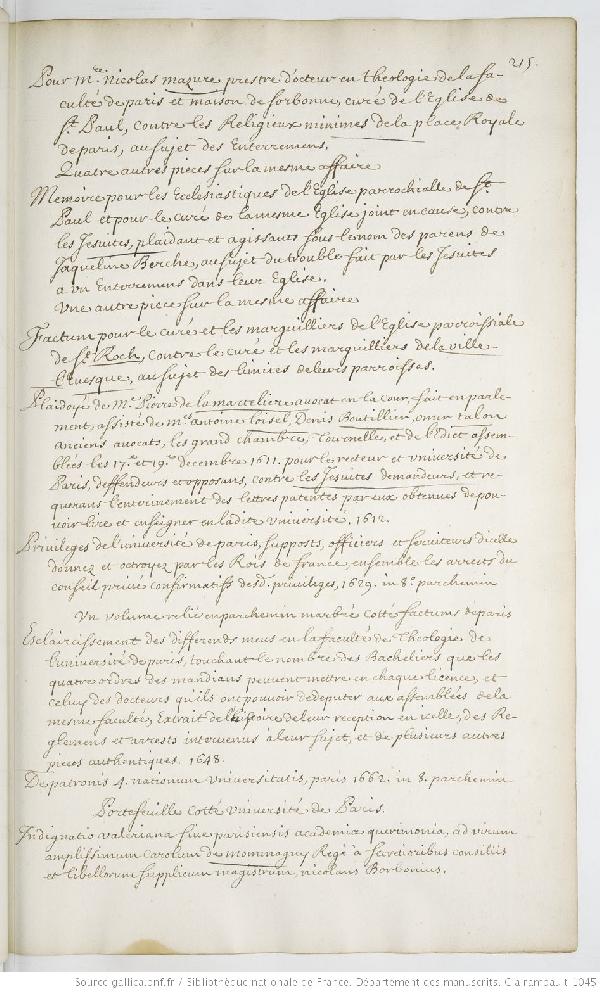 215.
Pour M.re Nicolas mazure prestre docteur en theologie de la fa-
culté de paris et maison de sorbonne, curé de l'Eglise de
st. Paul, contre les Religieux minimes de la place Royale
de paris, au sujet des Enterremens.
Quatre autres pieces sur la mesme affaire
Memoire pour les Ecclesiastiques de l'Eglise parrochialle de St.
Paul et pour le curé de la mesme Eglise joint en cause, contre
les Jesuites, plaidant et agissants sous le nom des parens de
Jaqueline Berche, au sujet du trouble fait par les Jesuites
a un Enterremens dans leur Eglise.
Une autre piece sur la mesme affaire
Factum pour le curé et les marguilliers de l'Eglise parroissiale
de St. Roch, contre le curé et les marguilliers de la ville
l'Evesque, au sujet des limites de leurs parroisses.
Plaidoyé de Mr. Pierre de la marteliere avocat en la cour, fait en parle-
ment, assisté de mrs antoine loisel, Denis Boutillier, omer talon
anciens avocats, les grand chambre, Tournelle, et de l'Edict assem-
blées les 17e. et 19e. decembre 1611. pour le recteur et université de
Paris, deffendeurs et opposans, contre les Jesuites demandeurs, et re-
querans l'enterinement des lettres patentes par eux obtenues de pou-
voir lire et enseigner en ladite université, 1612.
Privileges de l'université de paris, supposts, officiers et serviteurs d'icelle
donnez et octroyez par les Rois de france, ensemble les arrests du
conseil privé confirmatifs desd. privileges, 1629. in 8.º parchemin
Un volume relié en parchemin marbré cotté factums de paris
Esclaircissement des differends meus en la faculté de Theologie de
l'université de paris, touchant le nombre des Bacheliers que les
quatre ordres des mandians peuvent mettre en chaque licence, et
celuy des docteurs qu'ils ont pouvoir de deputer aux assemblées de la
mesme faculté, Extrait de l'histoire de leur reception en icelle, des Re-
glemens et arrests intervenus à leur sujet, et de plusieurs autres
pieces authentiques. 1648.
De patronis 4. nationum universitatis, paris 1662. in 8. parchemin
Portefeuille cotté Université de Paris.
Indignatio valeriana sive parisiensis academia querimonia, ad virum
amplissimum carolum de mommagny Regi à sanctioribus consiliis
et libellorum supplicum magistrum, nicolaus Borbonius.
Source gallica.bnf.fr / Bibliothèque nationale de France. Département des manuscrits. Clairambault 1045